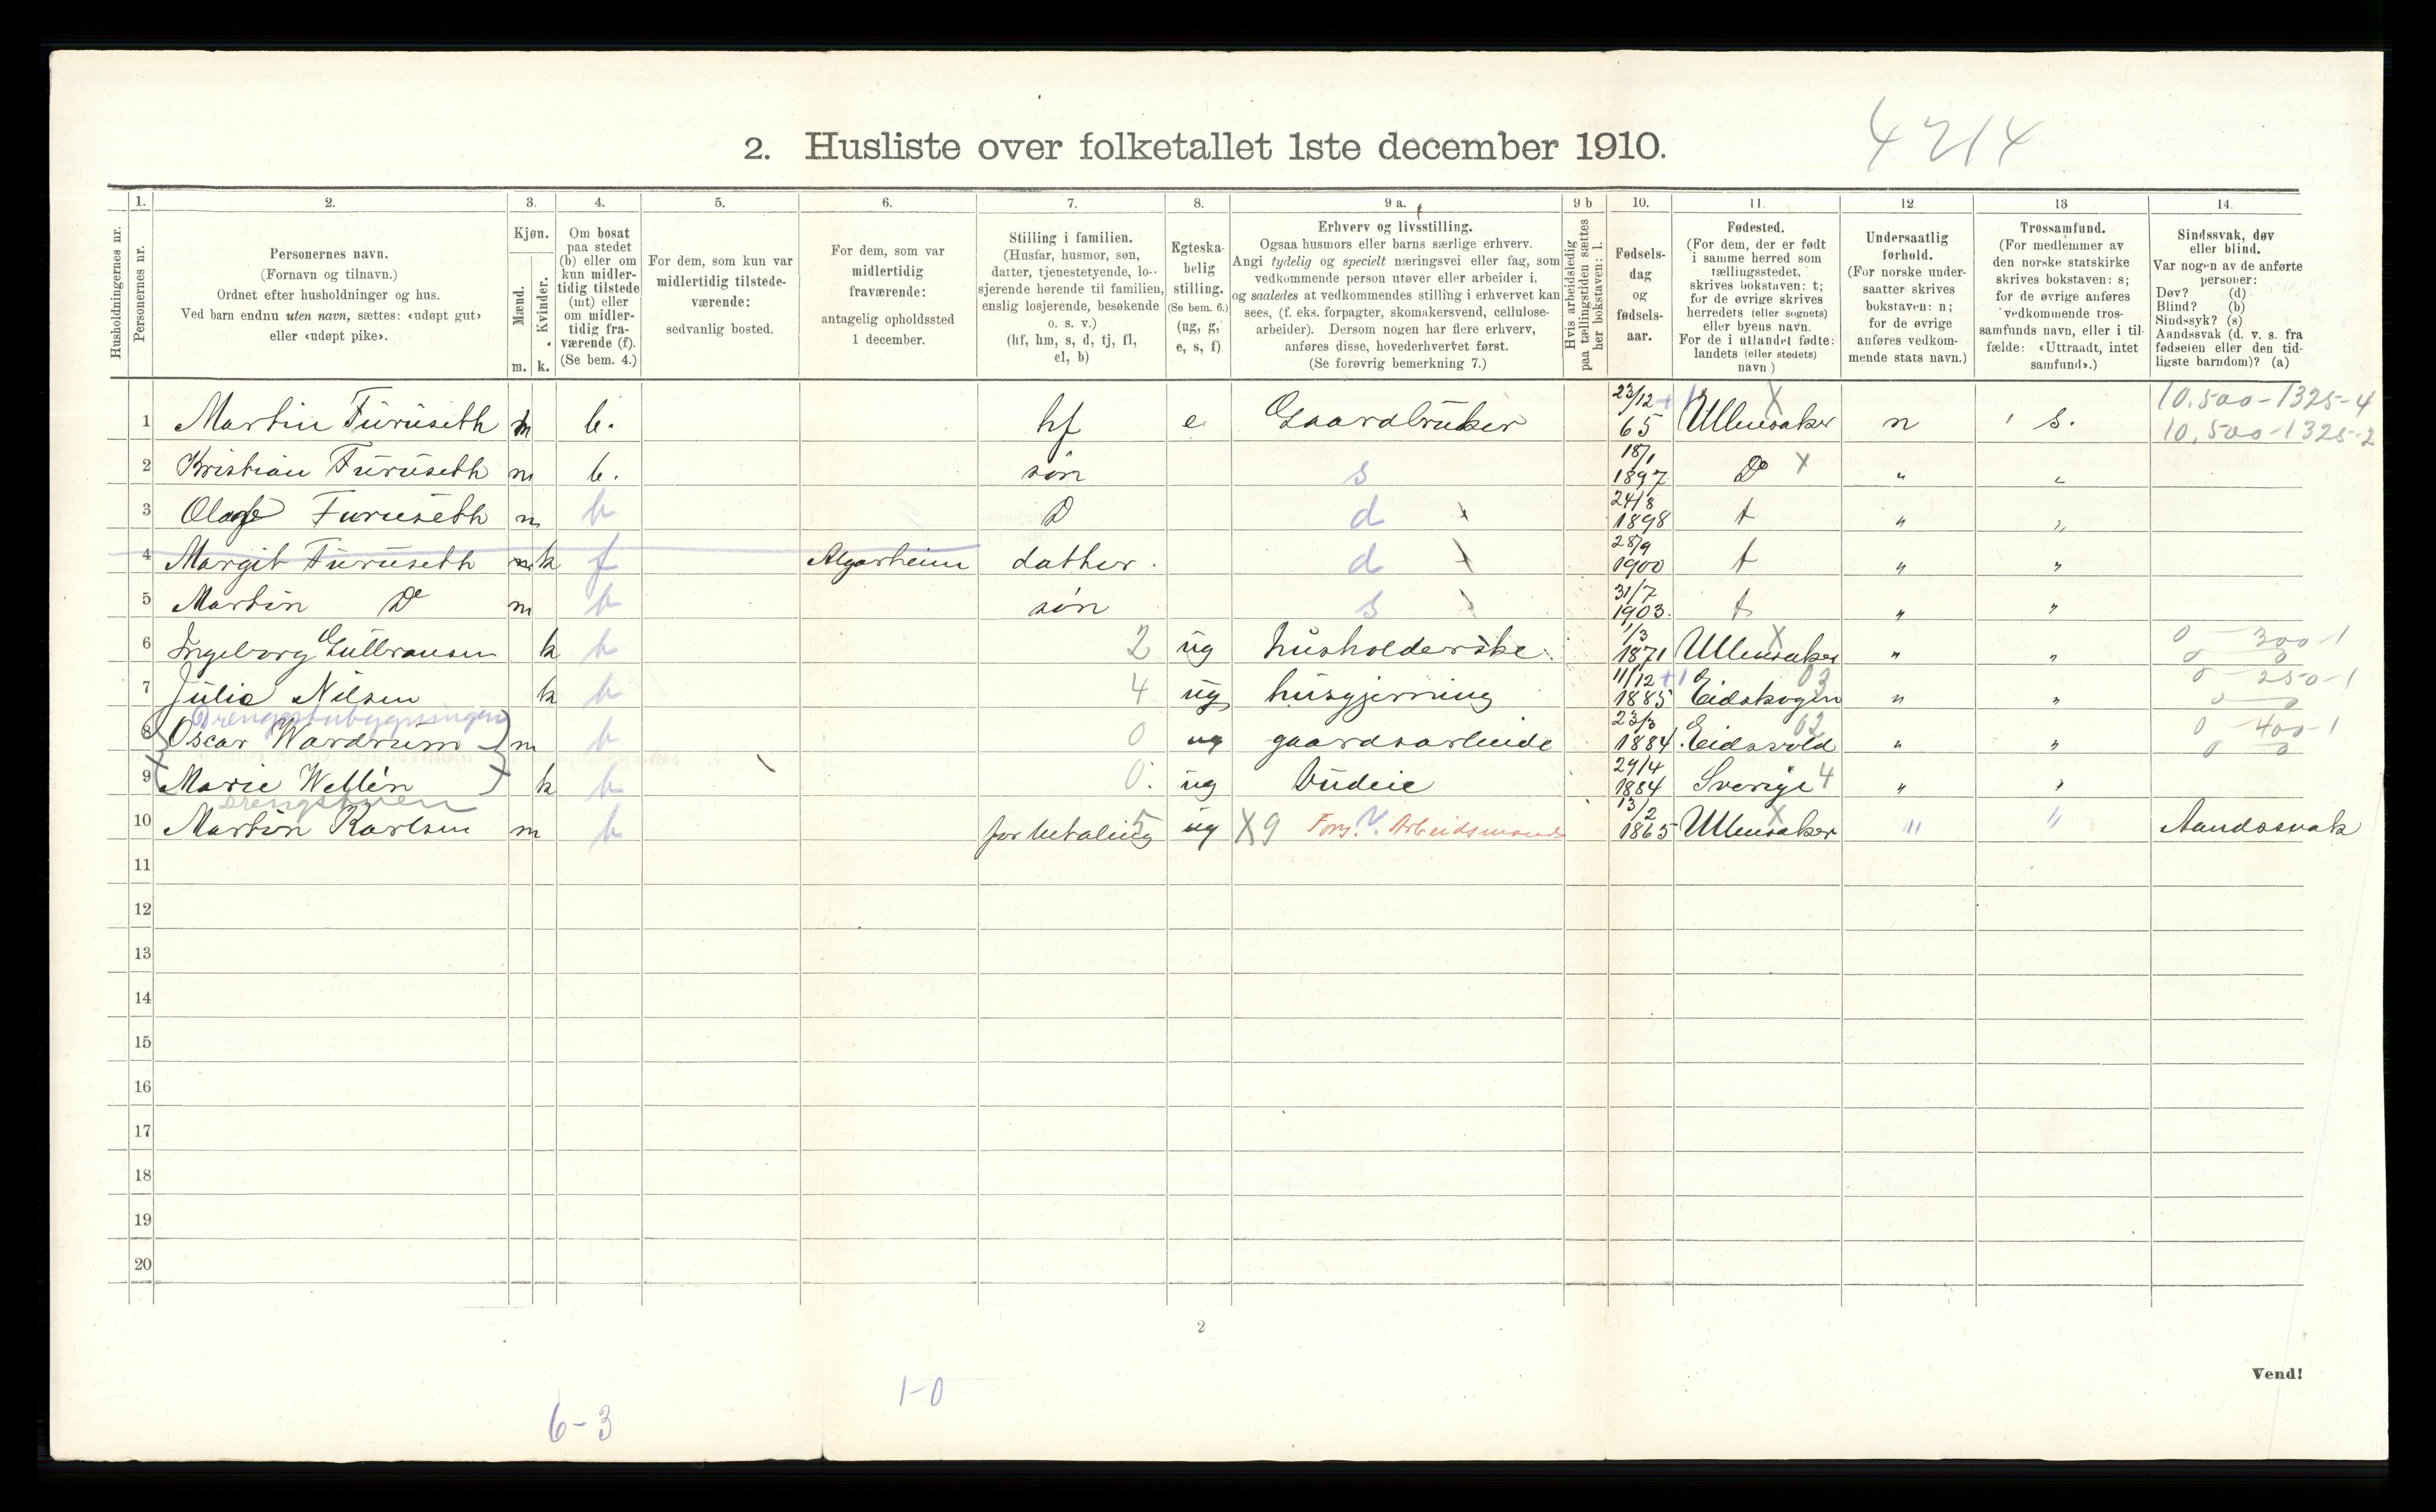 4214
2. Husliste over folketallet 1ste december 1910.
Husholdningernes nr.
1.
Personernes nr.
2.
Personernes navn.
(Fornavn og tilnavn.)
Ordnet efter husholdninger og hus.
Ved barn endnu uten navn, sættes: «udøpt gut»
eller «udøpt pike».
3.
Kjøn.
Mænd.
Kvinder.
m. k.
4.
Om bosat
paa stedet
(b) eller om
kun midler-
tidig tilstede
(mt) eller
om midler-
tidig fra-
værende (f).
(Se bem. 4.)
5.
For dem, som kun var
midlertidig tilstede-
værende:
sedvanlig bosted.
6.
For dem, som var
midlertidig
fraværende:
antagelig opholdssted
1 december.
7.
Stilling i familien.
(Husfar, husmor, søn,
datter, tjenestetyende, lo-
sjerende hørende til familien,
enslig losjerende, besøkende
o. s. v.)
(hf, hm, s, d, tj, fl,
el, b)
8.
Egteska-
belig
stilling.
(Se bem. 6.)
(ug, g,
e, s, f)
9 a.
Erhverv og livsstilling.
Ogsaa husmors eller barns særlige erhverv.
Angi tydelig og specielt næringsvei eller fag, som
vedkommende person utøver eller arbeider i,
og saaledes at vedkommendes stilling i erhvervet kan
sees, (f. eks. forpagter, skomakersvend, cellulose-
arbeider). Dersom nogen har flere erhverv,
anføres disse, hovederhvervet først.
(Se forøvrig bemerkning 7.)
9 b
Hvis arbeidsledig
paa tællingstiden sættes
her bokstaven: l.
10.
Fødsels-
dag
og
fødsels-
aar.
11.
Fødested.
(For dem, der er født
i samme herred som
tællingsstedet,
skrives bokstaven: t;
for de øvrige skrives
herredets (eller sognets)
eller byens navn.
For de i utlandet fødte:
landets (eller stedets)
navn.)
12
Undersaatlig
forhold.
(For norske under-
saatter skrives
bokstaven: n;
for de øvrige
anføres vedkom-
mende stats navn.)
13
Trossamfund.
(For medlemmer av
den norske statskirke
skrives bokstaven: s;
for de øvrige anføres
vedkommende tros-
samfunds navn, eller i til-
fælde: «Uttraadt, intet
samfund».)
14.
Sindssvak, døv
eller blind.
Var nogen av de anførte
personer:
Døv? (d)
Blind? (b)
Sindssyk? (s)
Aandssvak (d. v. s. fra
fødselen eller den tid-
ligste barndom)? (a)
1 Martin Furuseth m b. hf e Gaardbruker 23/12 65 +1 Ullensaker X n s. 10.500-1325-4
10.500-1325-2
2 Kristian Furuseth m b. søn s 18/1 1897 Do X " "
3 Olaf Furuseth m b D d 24/8 1898 t " "
4 Margit Furuseth k f Algarheim datter. d 28/9 1900 t " "
5 Martin Do m b søn s 31/7 1903. t " "
6 Ingeborg Gulbransen k b 2 ug husholderske. 1/3 1871 Ullensaker X " " 0 - 300-1
0 0
7 Julie Nilsen k b 4 ug husgjerning 11/12 1885 +1 Eidskogen 03 " " 0 - 250-1
0 0
Drengstubygningen
8 (Oscar Wardrum) m b 0 ug gaardsarbeide 23/3 1884. Eidsvold 02 " " 0 - 400-1
0 0
9 (Marie Wellén) k b 0. ug budeie 29/4 1884 Sverige 4 " "
Drengstuen
10 Martin Karlsen m b for betaling 5 ug X9 Fors. V. Arbeidsmand 13/2 1865 Ullensaker X " " Aandssvak
11
12
13
14
15
16
17
18
19
20
2
Vend!
1-0
6-3